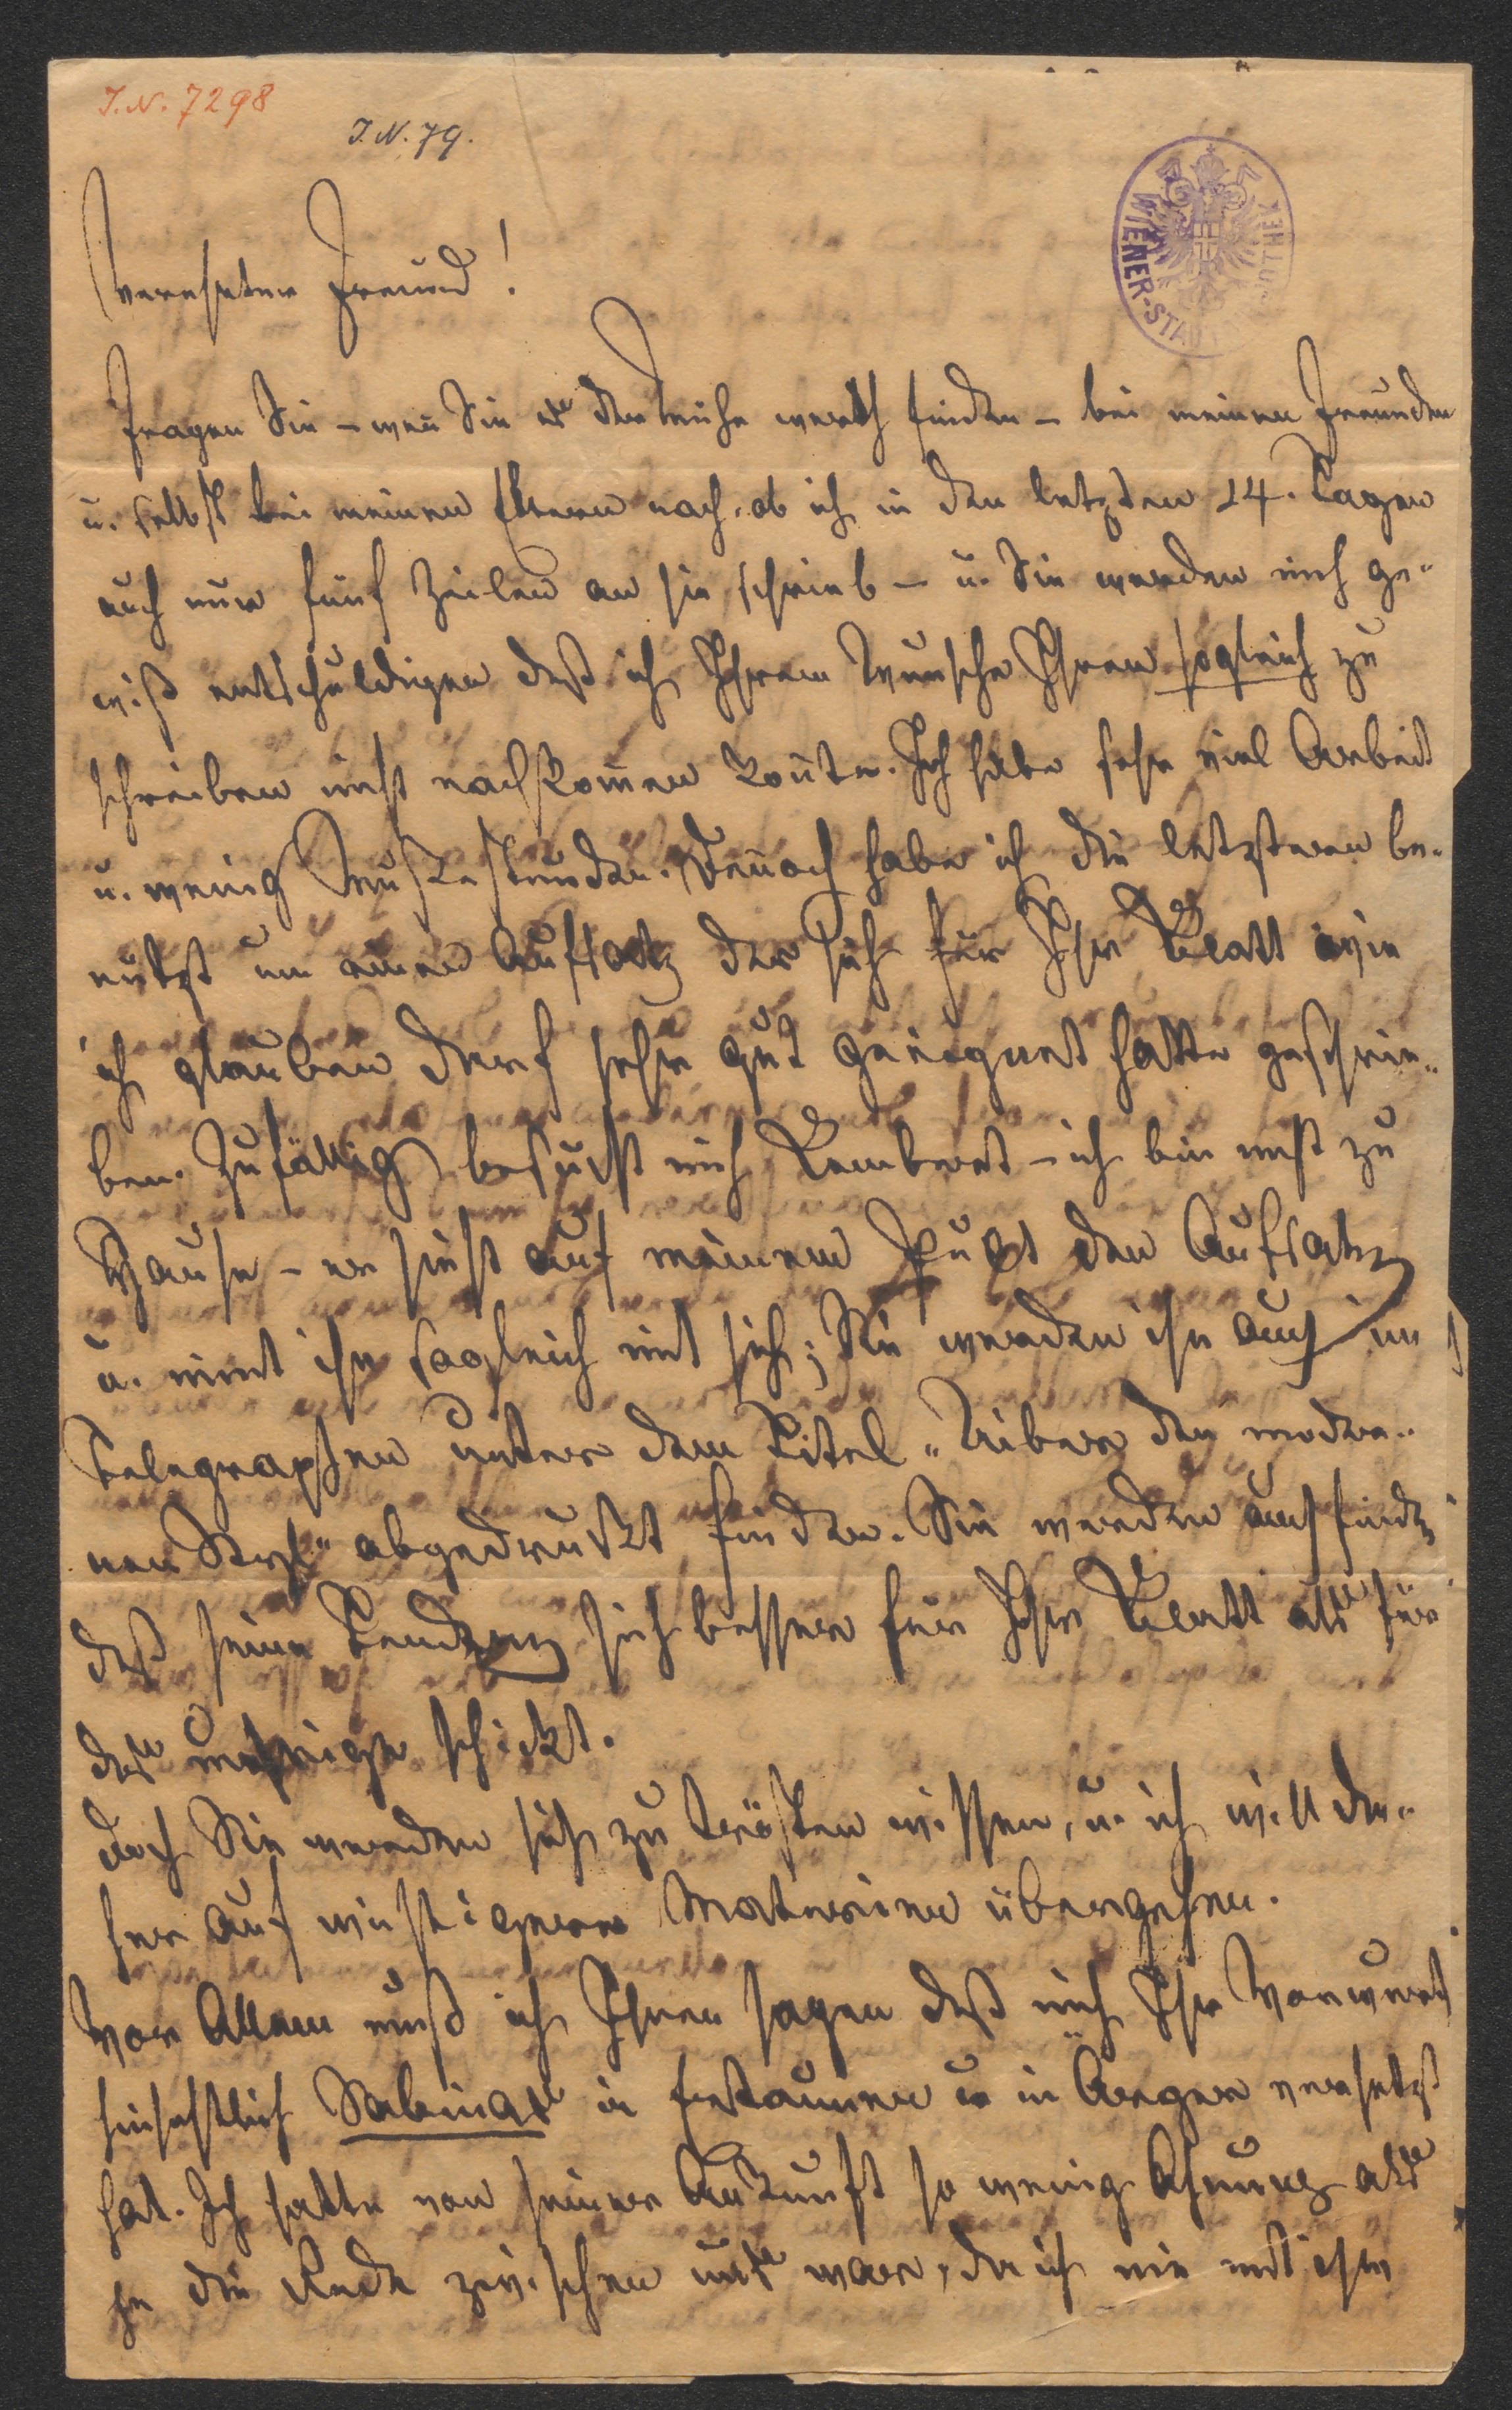 J.N. 7298
J.N. 79.
WIENER-STADT
Verehrter Freund!
Fragen Sie – wen̄ Sie es der Mühe werth finden – bei meinen Freunden
u. selbst bei meinen Eltern nach, ob ich in den letzten 14. Tagen
auch nur fünf Zeilen an sie schrieb – u. Sie werden mich ge-
wiß entschuldigen daß ich Ihrem Wunsche Ihnen sogleich zu
schreiben nicht nachkom̄en kon̄te. Ich habe sehr viel Arbeit
u. wenig Mußestunden. Den̄och habe ich die letzteren be-
nützt um einen Aufsatz der sich für Ihr Blatt wie
ich glauben darf sehr gut geeignet hätte geschrie-
ben. Zufällig besucht mich Lembert – ich bin nicht zu
Hause – er sieht auf meinem Pult den Aufsatz
u. nim̄t ihn sogleich mit sich; Sie werden ihn auch im
Telegraphen unter dem Titel „Uiber den moder-
nen Styl" abgedruckt finden. Sie werden auch finden
daß seine Tendenz sich besser für Ihr Blatt als für
das schickt.
Doch Sie werden sich zu trösten wissen, u. ich will da-
her auf wichtigere Materien übergehen.
Vor Allem muß ich Ihnen sagen daß mich Ihr Vorwurf
hinsichtlich Sabinas in Erstaunen u in Aerger versetzt
hat. Ich hatte von seiner Ankunft so wenig Ahnung als
je die Rede zwischen uns war, da ich nie mit ihm